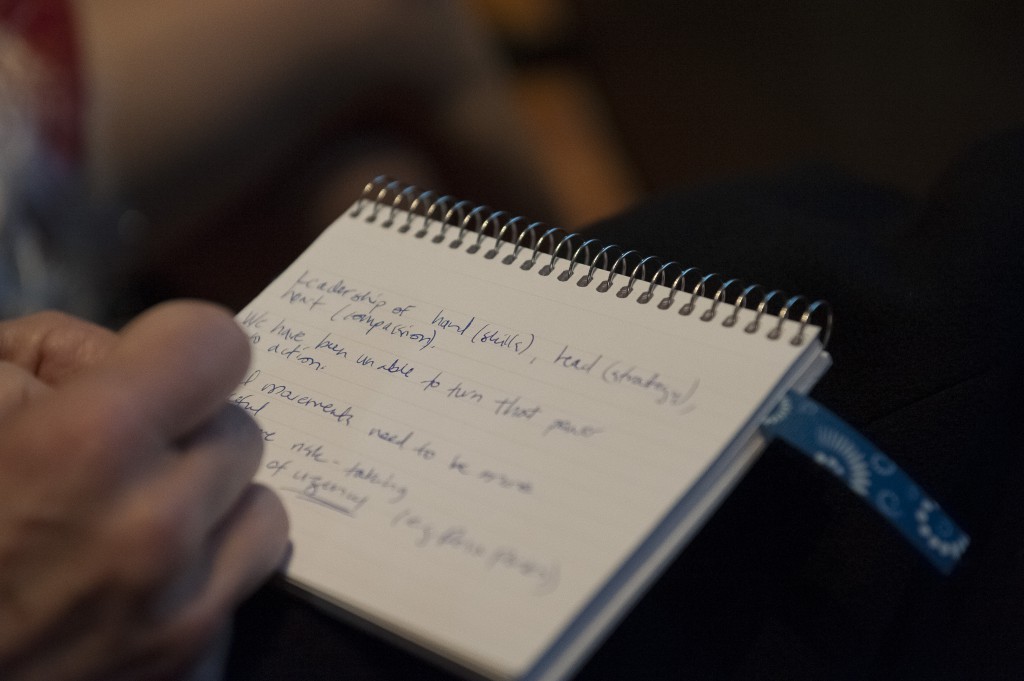 Leadership of hand (skills), head (strategy),
heart (compassion).
We have been unable to turn that power
action.
movements need to be more
risk-taking
of urgency (eg